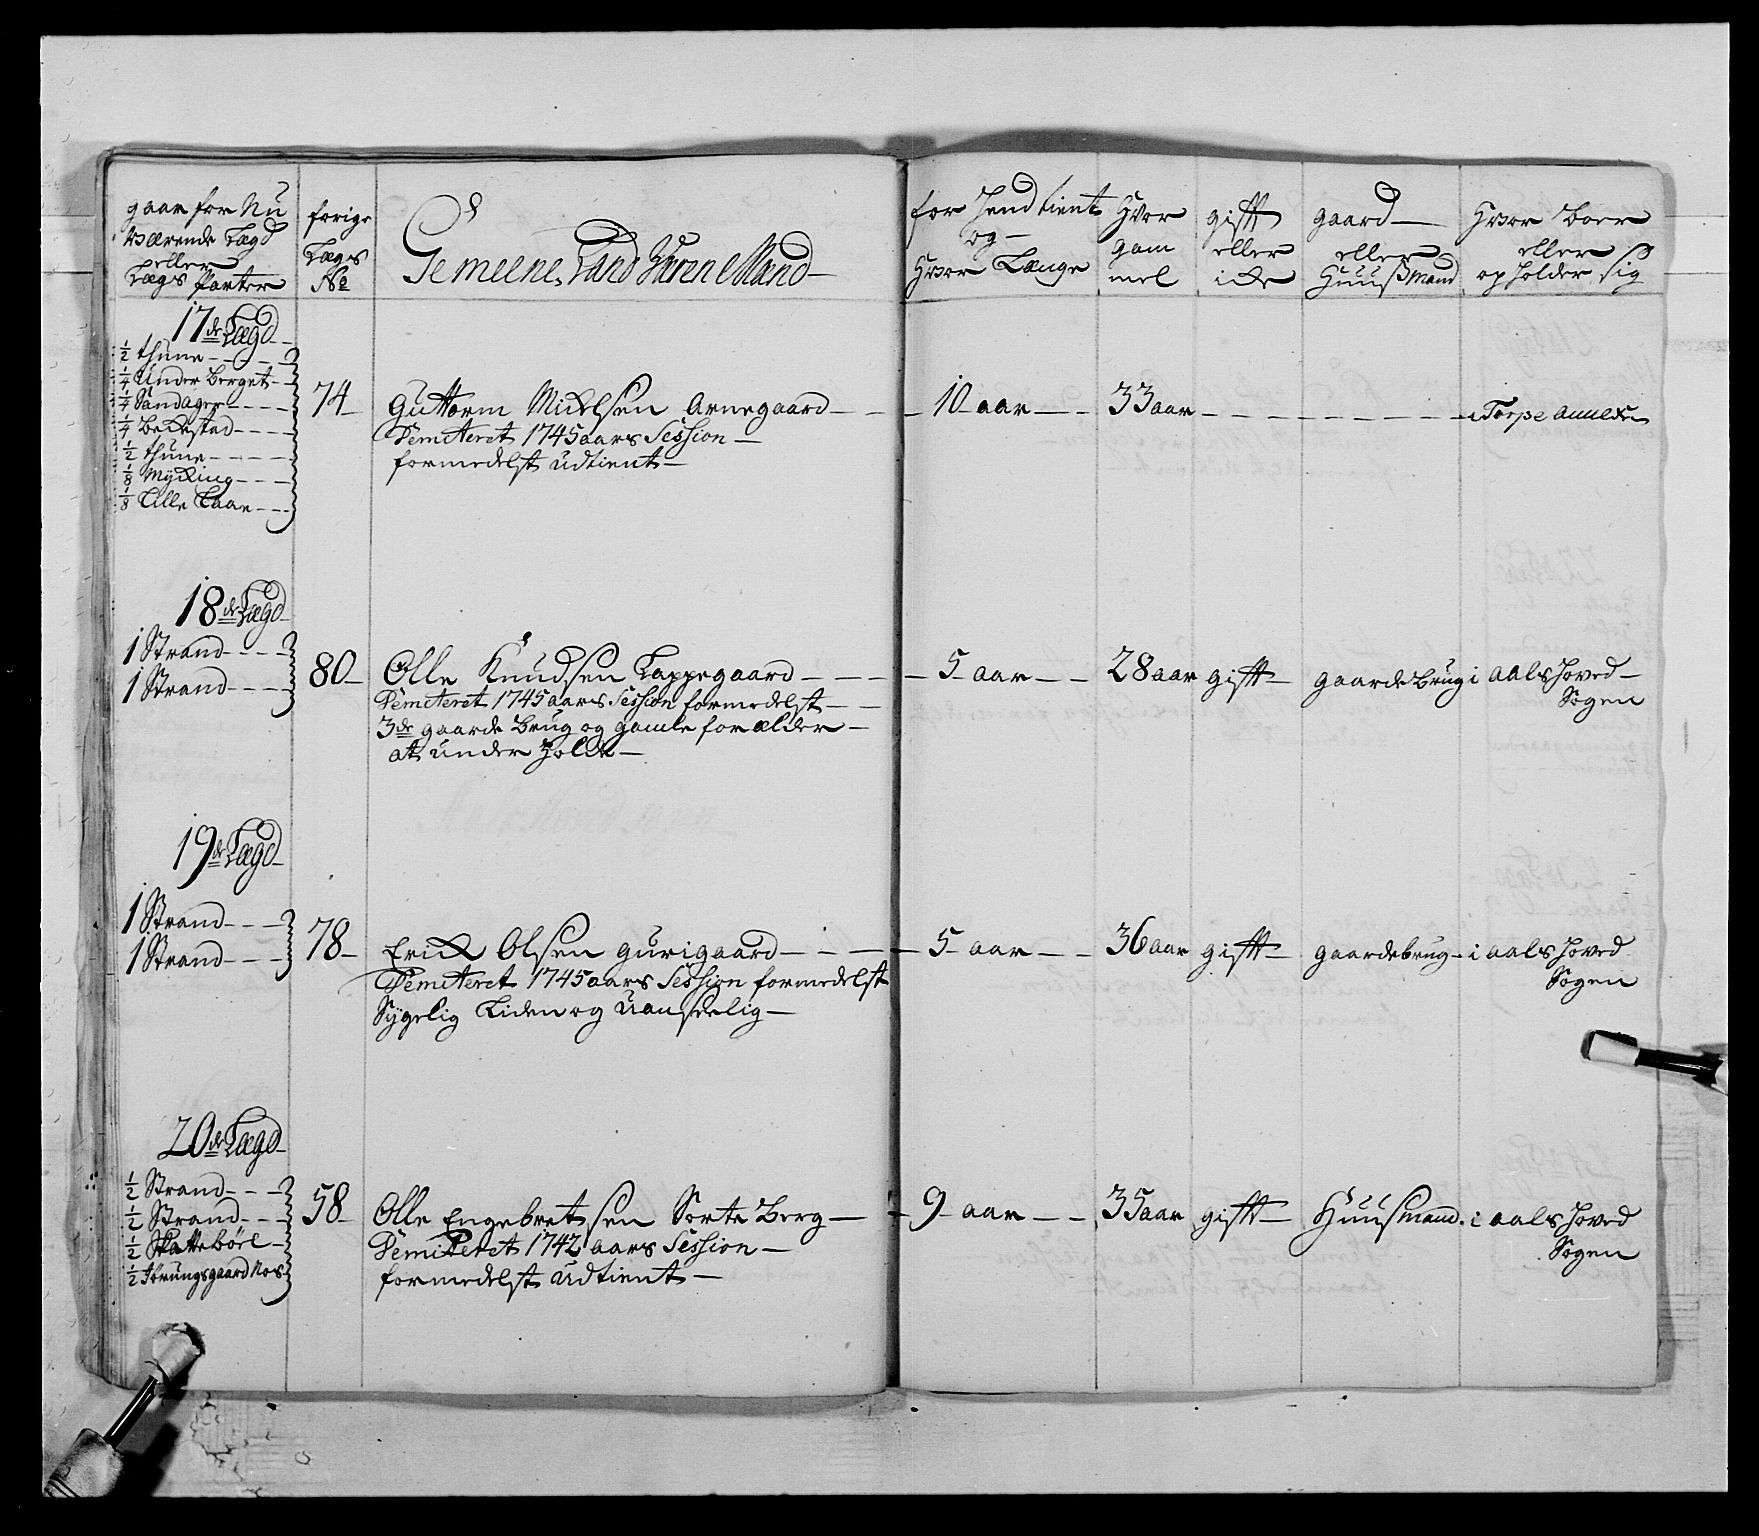 gaar for Nu
værende Lægd
eller
Lægs Parter
forige
Lægs
No
Gemeene Land Værn Mænd
for hend tient
og
Hvor Længe
Hvor
gam
mel
gifft
eller
icke
gaard
eller
Huusmand
Hvor boer
eller
opholder sig
17de Lægd
1/2 thune
1/4 Under Berget
1/4 Sandager
1/4 Beckestad
1/2 thune
1/8 Mycking
1/8 Lille Laae
74
Guttorm Mickelsen Arnegaard
Demitteret 1745 aars Session
formedelst udtient
10 aar
33 aar
i Torpe annex
18de Lægd
1 Strand
1 Strand
80
Olle Knudsen Lappegaard
Demitteret 1745 aars Session formedelst
3de gaarde Brug og gamle forælder
at under holde
5 aar
28 aar
gifft
gaardebrug
i aals Hoved
Sogen
19de Lægd
1 Strand
1 Strand
78
Erick Olsen Gurigaard
Demitteret 1745 aars Session formedelst
Sygelig Liden og Uanseelig
5 aar
36 aar
gifft
gaardebrug
i aals Hoved
Sogen
20de Lægd
1/2 Strand
1/2 Strand
1/2 Skattebøel
1/2 Jørungsgaard Nos
58
Olle Engebretsen Sorte Berg
Demitteret 1742 aars Session
formedelst udtient
9 aar
35 aar
gifft
Huusmand
i aals Hoved
Sogen